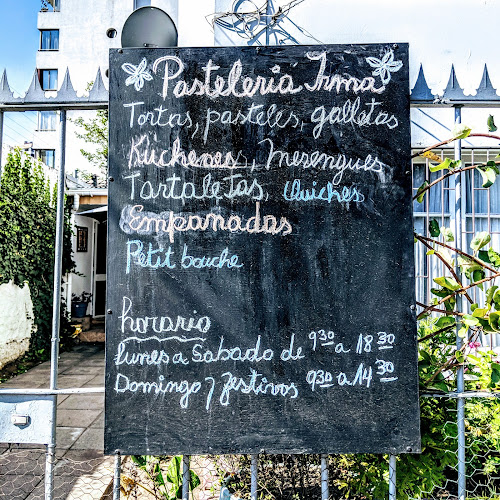 Pastelería Irma
Tortas, pasteles, galletas
Kuchenes, Merengues
Tartaletas, Quiches
Empanadas
Petit bouche
horario
lunes a Sabado de 9 30 a 18 30
Domingo y Festivos 9 30 a 14 30